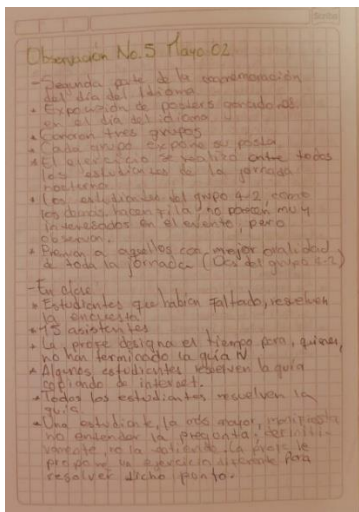 Observación No.5 Mayo 02
- Segunda parte de la conmemoración
del día del Idioma
* Exposición de posters
en el día del idioma
* tres grupos
* Cada grupo expone su
* El ejercicio se realizó entre todos
los estudiantes de la jornada
nocturna
* Los estudiantes del grupo 4-2, como
los demás hacen fila, no parecen muy
interesados en el evento, pero
observan.
* Premian a aquellos con mejor oralidad
de toda la jornada (Uds del grupo 6-2)
- En clase
* Estudiantes que habían faltado, resuelven
la encuesta
* 15 asistentes
* La profe designa el tiempo para, quienes,
no han terminado la guía N
* Algunos estudiantes resuelven la guía
copiando de internet.
* Todos los estudiantes resuelven la
guía.
* Una estudiante, la más mayor, manifiesta
no entender la pregunta,
no la entiende. La profe le
propone un ejercicio para
resolver dicho punto.